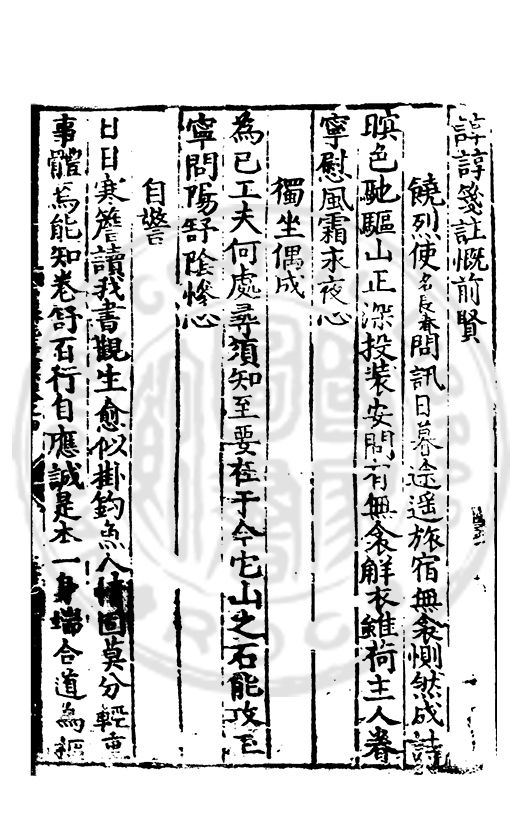 諄諄箋註慨前賢
饒烈使名長春問訊日暮途遥旅宿無衾惻然成詩
暝色馳驅山正深投装安問有無衾解衣雖荷主人眷
寧慰風霜永夜心
獨坐偶成
為已工夫何處尋須知至要在于今它山之石能攻玉
寧問陽舒陰慘心
自警
日日寒簷讀我書觀生愈似掛鈎魚人情固莫分輕重
事體焉能知卷舒百行自應誠是本一身端合道為樞